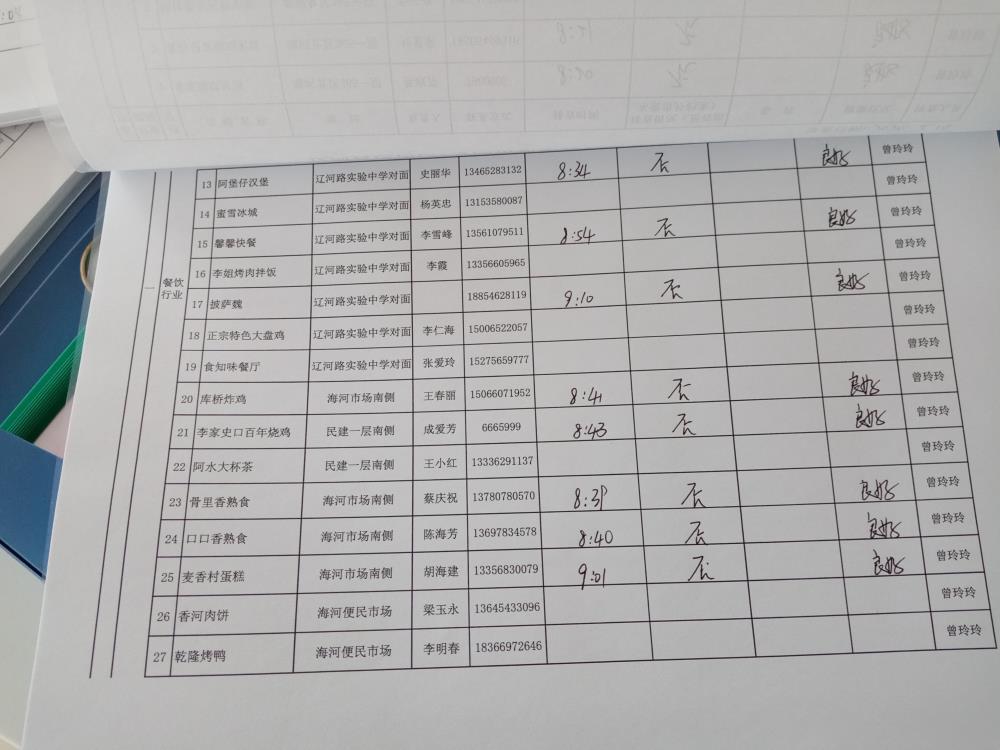 13 阿堡仔汉堡 辽河路实验中学对面 史丽华 13465283132 8:34 否 良好 曾玲玲
14 蜜雪冰城 辽河路实验中学对面 杨英忠 13153580087 曾玲玲
15 馨馨快餐 辽河路实验中学对面 李雪峰 13561079511 8:54 否 良好 曾玲玲
16 李姐烤肉拌饭 辽河路实验中学对面 李霞 13356605965 曾玲玲
一 餐饮行业
17 披萨魏 辽河路实验中学对面 18854628119 9:10 否 良好 曾玲玲
18 正宗特色大盘鸡 辽河路实验中学对面 李仁海 15006522057 曾玲玲
19 食知味餐厅 辽河路实验中学对面 张爱玲 15275659777 曾玲玲
20 库桥炸鸡 海河市场南侧 王春丽 15066071952 8:41 否 良好 曾玲玲
21 李家史口百年烧鸡 民建一层南侧 成爱芳 6665999 8:43 否 良好 曾玲玲
22 阿水大杯茶 民建一层南侧 王小红 13336291137 曾玲玲
23 骨里香熟食 海河市场南侧 蔡庆祝 13780780570 8:39 否 良好 曾玲玲
24 口口香熟食 海河市场南侧 陈海芳 13697834578 8:40 否 良好 曾玲玲
25 麦香村蛋糕 海河市场南侧 胡海建 13356830079 9:01 否 良好 曾玲玲
26 香河肉饼 海河便民市场 梁玉永 13645433096 曾玲玲
27 乾隆烤鸭 海河便民市场 李明春 18366972646 曾玲玲